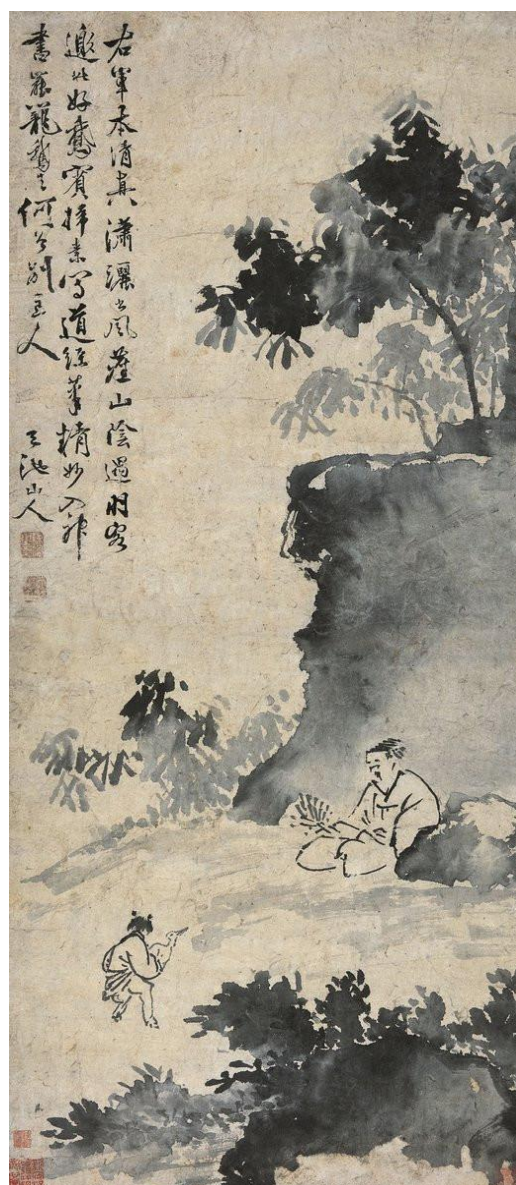 右軍本清真瀟灑出風塵山陰過羽客
邀此好鵞賓掃素寫道經筆精妙入神
書罷籠鵞去何曾別主人
天池山人